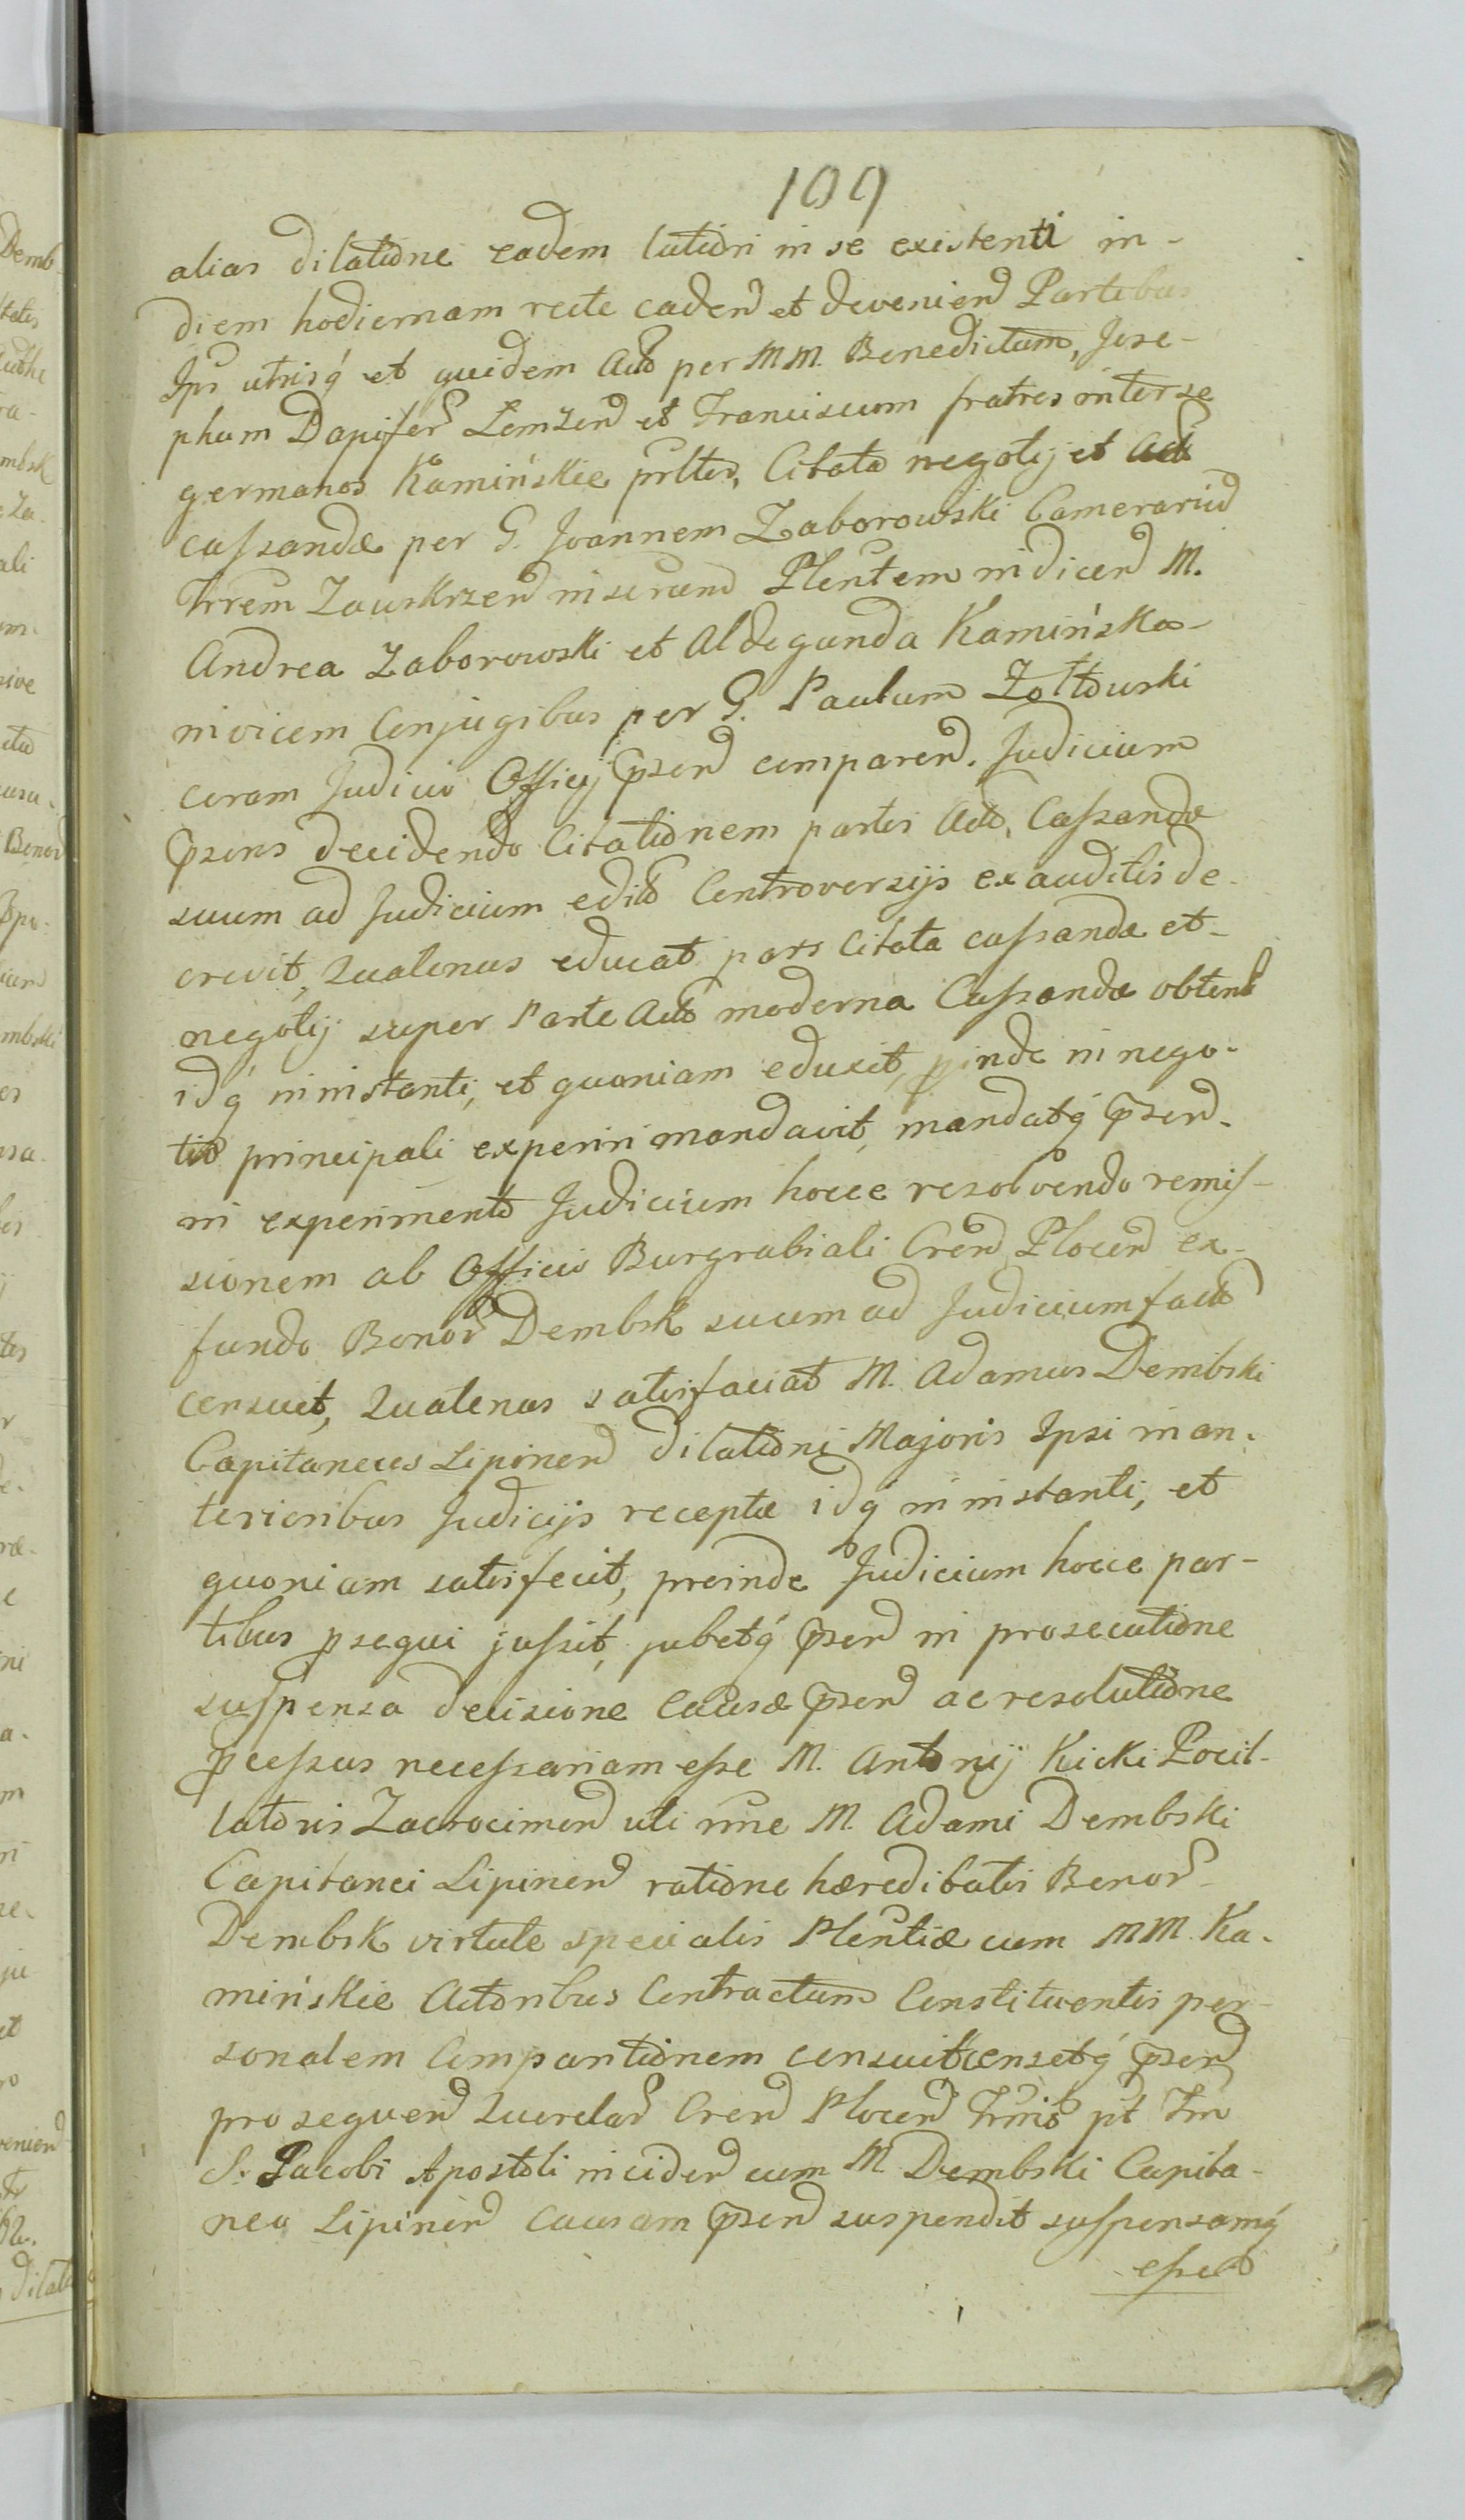 109
alias dilatione eadem lationi in se existenti in-
diem hodiernam recte caden et devenien Partibus
Ips utrisq et quidem Acto per MM. Benedictum, Jose-
phum Dapifer Lomzen et Franciscum fratres inter se
germanos Kamińskie prltes, Citata negotij et Act
cassandæ per G. Joannem Zaborowski Camerariũ
Trrem Zawskrzen Plentem indicen M.
Andrea Zaborowski et Aldegunda Kamińska-
invicem Conjugibus per G. Paulum Zołtowski
coram Judicio Officij psen comparen. Judicium
psens decidendo Citationem partis Acto, Cassandæ
suum ad Judicium edito Controversijs exauditis de-
crevit, Quatenus educat pars Citata cassandæ et-
negotij super Parte Acto moderna Cassandæ obtent
idq in instanti, et quoniam eduxit, pinde in nego-
tio principali experiri mandavit, mandatq psen.
in experimento Judicium hocce resolvendo remis-
sionem ab Officio Burgrabiali Cren Plocen ex-
fundo Bonor Dembsk suum ad Judicium facto
censuit, Quatenus satisfaciat M. Adamus Dembski
Capitaneus Lipinen dilationi Majoris Ipsi in an-
terioribus Judicijs receptæ idq in instanti, et
quoniam satisfecit, proinde Judicium hocce par-
tibus psequi jussit, jubetq psen in prosecutione
suspensa decisione Causæ psen ac resolutione
pcessus necessariam esse M. Antonij Kicki Pocil-
latoris Zacrocimen uti nne M. Adami Dembski
Capitanei Lipinen ratione hæreditatis Bonor-
Dembsk virtute specialis Plentiæ cum MM. Ka-
mińskie Actoribus Contractum Constituentis per-
sonalem Comparitionem censuit censetq psen
pro sequen Querelar Cren Plocen Trmis pt Fm
S. Jacobi Apostoli inciden cum M. Dembski Capita-
neo Lipinen Causam psen suspendit suspensamq
esse